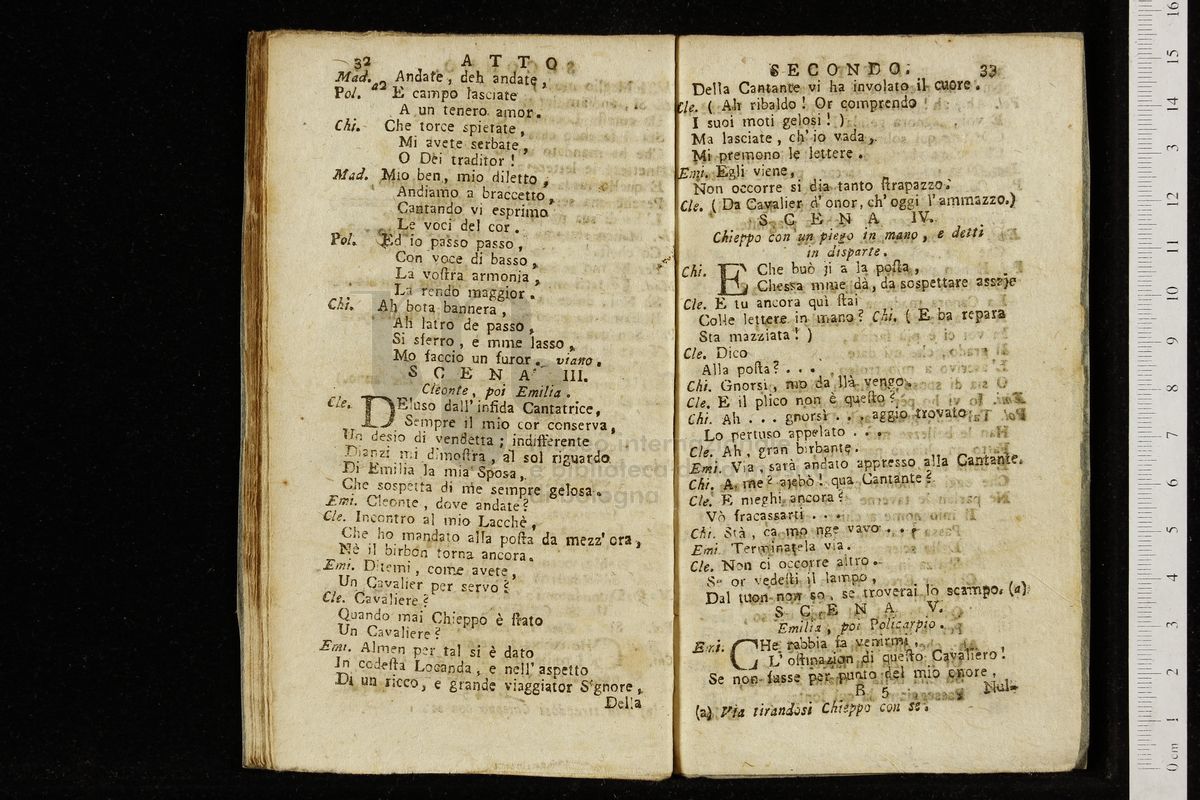 32 ATTO
Mad. Andate, deh andate,
Pol. a2 E campo lasciate
A un tenero amor.
Chi. Che torce spietate,
Mi avete serbate,
O Dei traditor!
Mad. Mio ben, mio diletto,
Andiamo a braccetto,
Cantando vi esprima
Le voci del cor.
Pol. Ed io passo passo,
Con voce di basso,
La vostra armonia,
La rendo maggior.
Chi. Ah bota bannera,
Ah latro de passo,
Si sferro, e mme lasso,
Mo faccio un furor. viano.
SCENA III.
Cleonte, poi Emilia.
Cle. DEluso dall' infida Cantatrice,
Sempre il mio cor conserva,
Un desio di vendetta; indifferente
Dianzi mi dimostra, al sol riguardo
Di Emilia la mia Sposa,
Che sospetta di me sempre gelosa.
Emi. Cleonte, dove andate?
Cle. Incontro al mio Lacchè,
Che ho mandato alla posta da mezz' ora,
Nè il birbon torna ancora.
Emi. Ditemi, come avete,
Un Cavalier per servo?
Cle. Cavaliere?
Quando mai Chieppo è stato
Un Cavaliere?
Emi. Almen per tal si è dato
In codesta Locanda, e nell' aspetto
Di un ricco, e grande viaggiator Signore,
Della
SECONDO. 33
Della Cantante vi ha involato il cuore.
Cle. (Ah ribaldo! Or comprendo
I suoi moti gelosi!)
Ma lasciate, ch' io vada,
Mi premono le lettere.
Emi. Egli viene,
Non occorre si dia tanto strapazzo.
Cle. (Da Cavalier d' onor, ch' oggi l' ammazzo.)
SCENA IV.
Chieppo con un piego in mano, e detti
in disparte.
Chi. E Che buò ji a la posta,
Chessa mme dà, da sospettare assaje
Cle. E tu ancora qui stai
Colle lettere in mano? Chi. (E ba repara
Sta mazziata!)
Cle. Dico
Alla posta? ...
Chi. Gnorsì, mo da llà vengo.
Cle. E il plico non è questo?
Chi. Ah ... gnorsì ... aggio trovato
Lo pertuso appelato ...
Cle. Ah, gran birbante.
Emi. Via, sarà andato appresso alla Cantante.
Chi. A me? ajebò! qua Cantante?
Cle. E nieghi ancora?
Vò fracassarti ...
Chi. Stà, ca mo nge vavo ...
Emi. Terminatela via.
Cle. Non ci occorre altro.
Se or vedesti il lampo,
Dal tuon non so, se troverai lo scampo. (a)
SCENA V.
Emilia, poi Policarpio.
Emi. CHe rabbia fa venirmi,
L' ostinazion di questo Cavaliero!
Se non fusse per punto del mio onore,
B 5 Nul-
(a) Via tirandosi Chieppo con se.